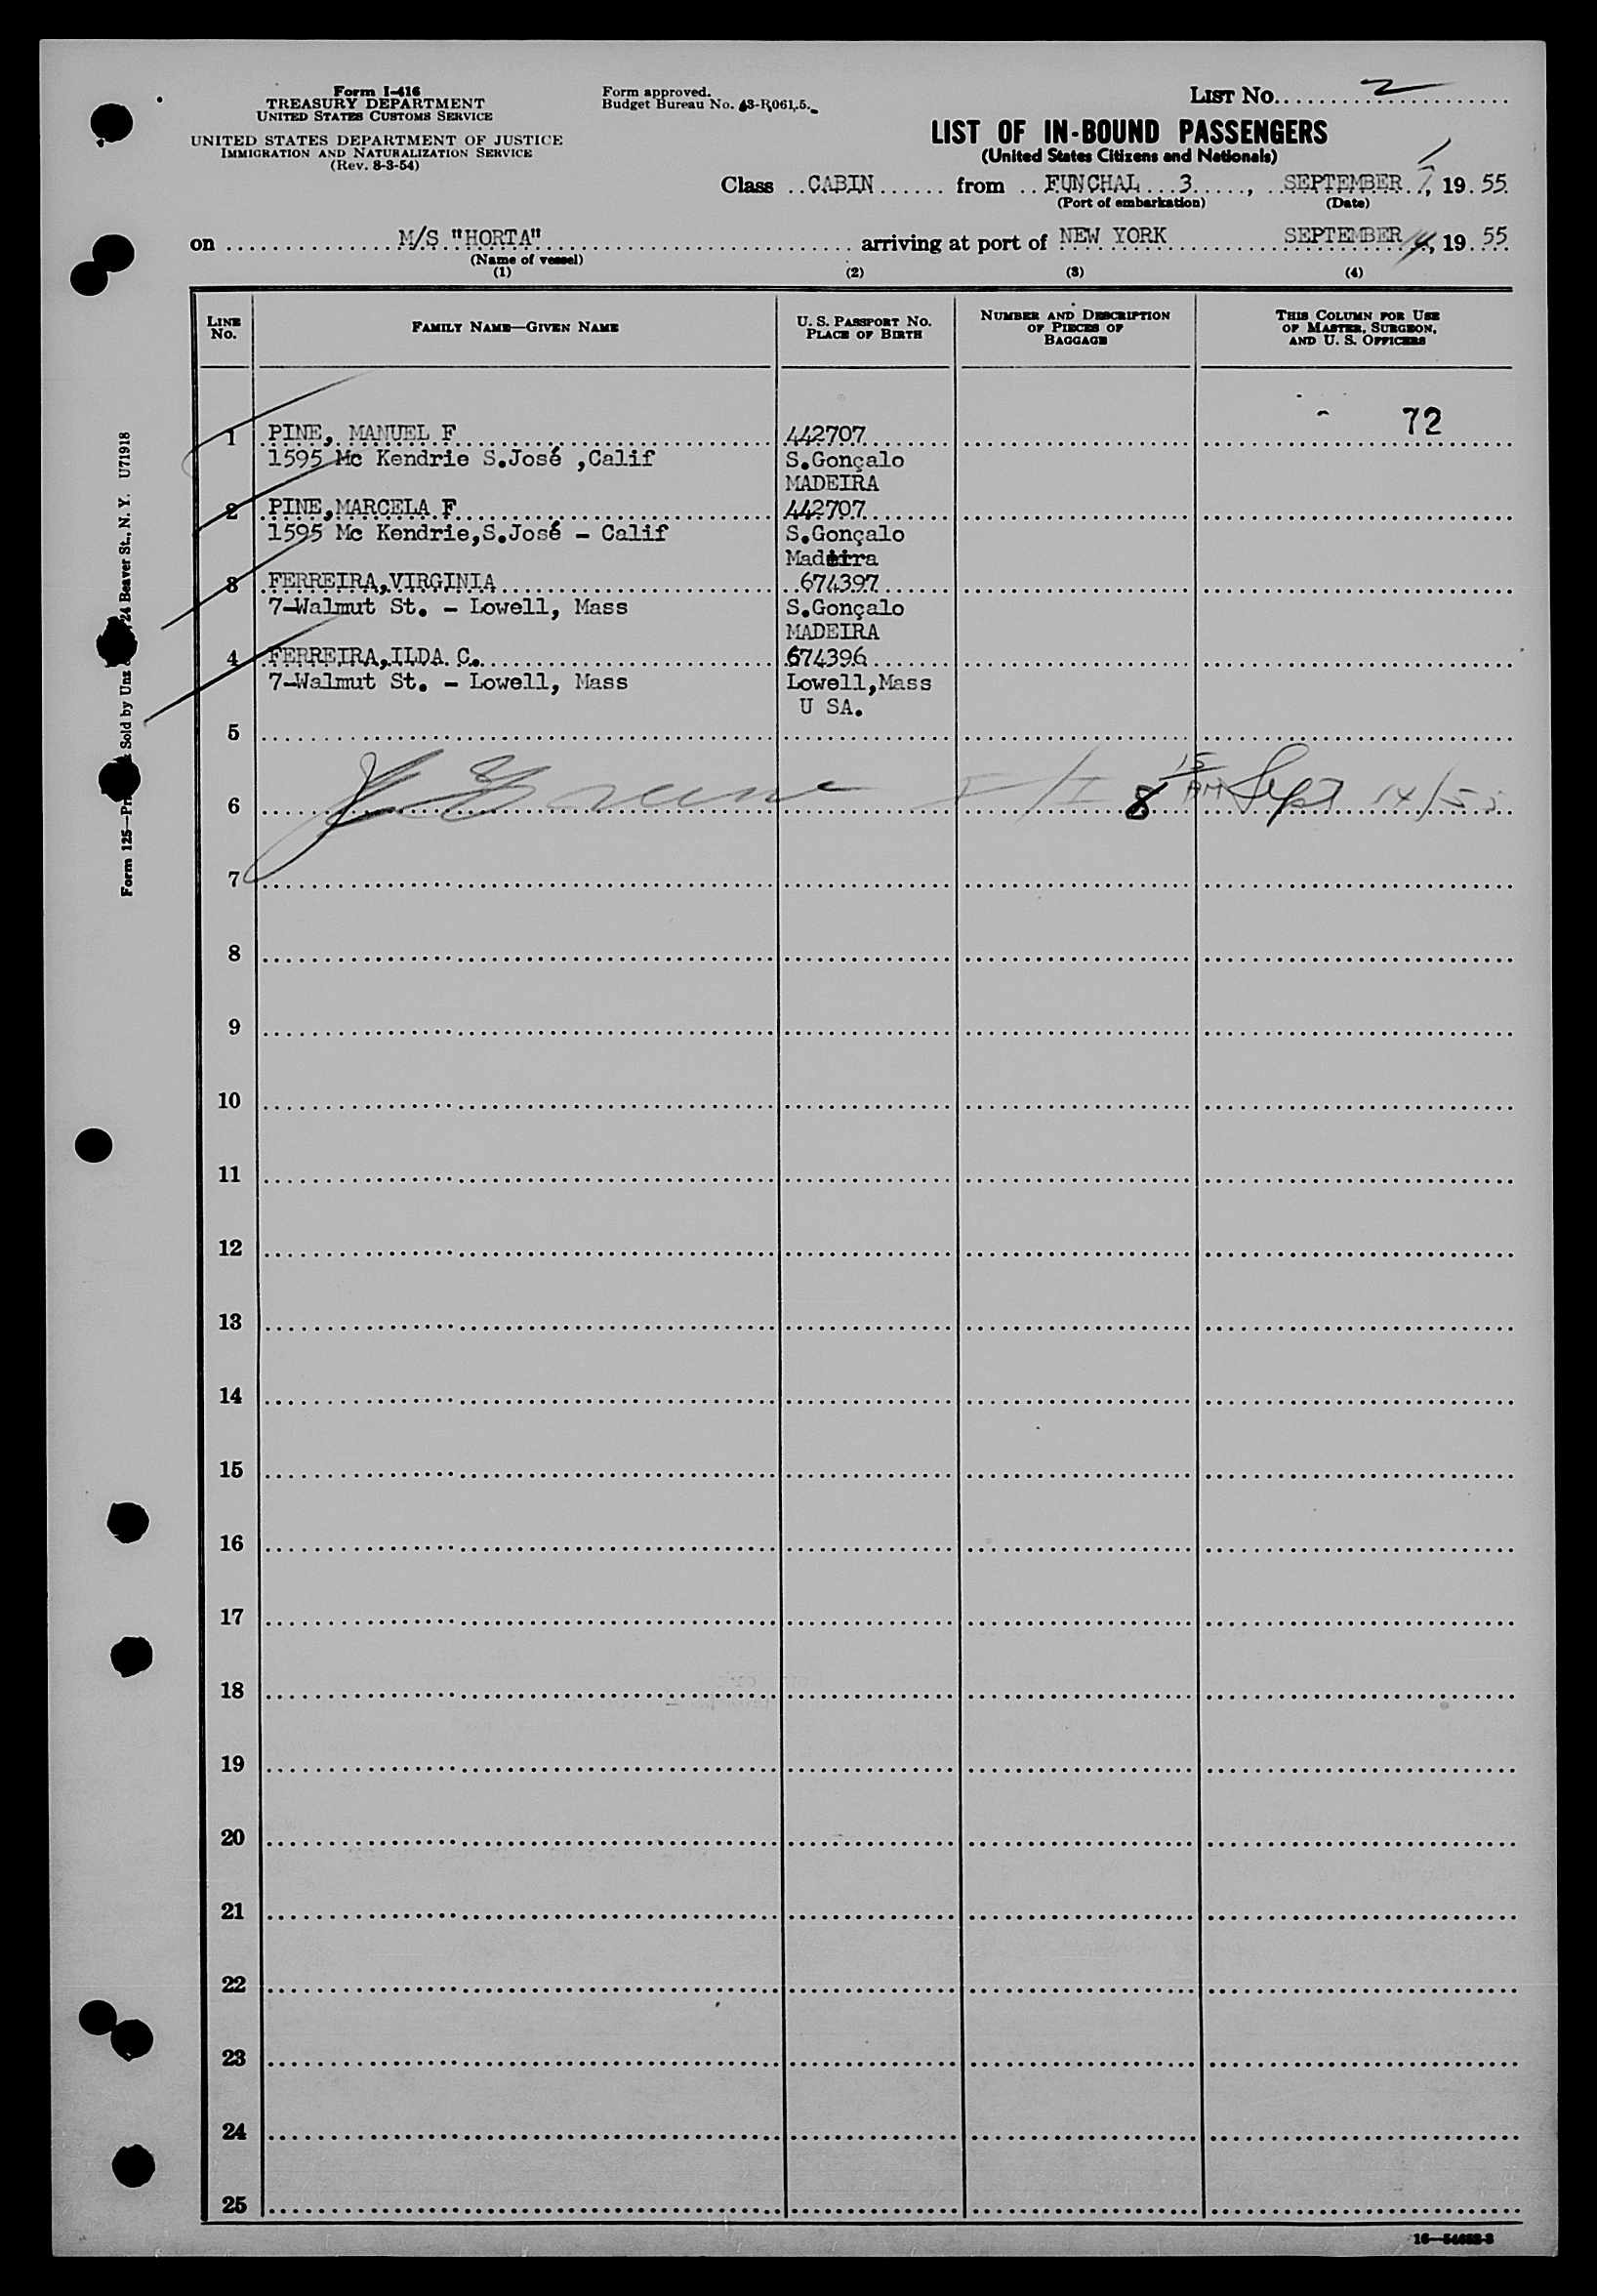 Form I-416
TREASURY DEPARTMENT
UNITED STATES CUSTOMS SERVICE
UNITED STATES DEPARTMENT OF JUSTICE
IMMIGRATION AND NATURALIZATION SERVICE
(Rev. 8-3-54)
Form approved.
Budget Bureau No. 43-R061.5.
LIST NO. 2
LIST OF IN-BOUND PASSENGERS
(United States Citizens and Nationals)
Class CABIN from FUNCHAL 3, SEPTEMBER 7, 19 55
(Port of embarkation) (Date)
on M/S "HORTA" arriving at port of NEW YORK SEPTEMBER 14, 19 55
(Name of vessel)
(1) (2) (3) (4)
LINE NO.
FAMILY NAME—GIVEN NAME
U. S. PASSPORT NO.
PLACE OF BIRTH
NUMBER AND DESCRIPTION
OF PIECES OF
BAGGAGE
THIS COLUMN FOR USE
OF MASTER, SURGEON,
AND U. S. OFFICERS
72
1 PINE, MANUEL F 442707
1595 Mc Kendrie S.José ,Calif S.Gonçalo
MADEIRA
2 PINE,MARCELA F 442707
1595 Mc Kendrie,S.José - Calif S.Gonçalo
Madeira
3 FERREIRA,VIRGINIA 674397
7-Walmut St. - Lowell, Mass S.Gonçalo
MADEIRA
4 FERREIRA,ILDA C. 674396
7-Walmut St. - Lowell, Mass Lowell,Mass
U SA.
5
6 8 15 AM Sept 14/55
7
8
9
10
11
12
13
14
15
16
17
18
19
20
21
22
23
24
25
Form 125— Sold by Unz 24 Beaver St., N. Y. U71918